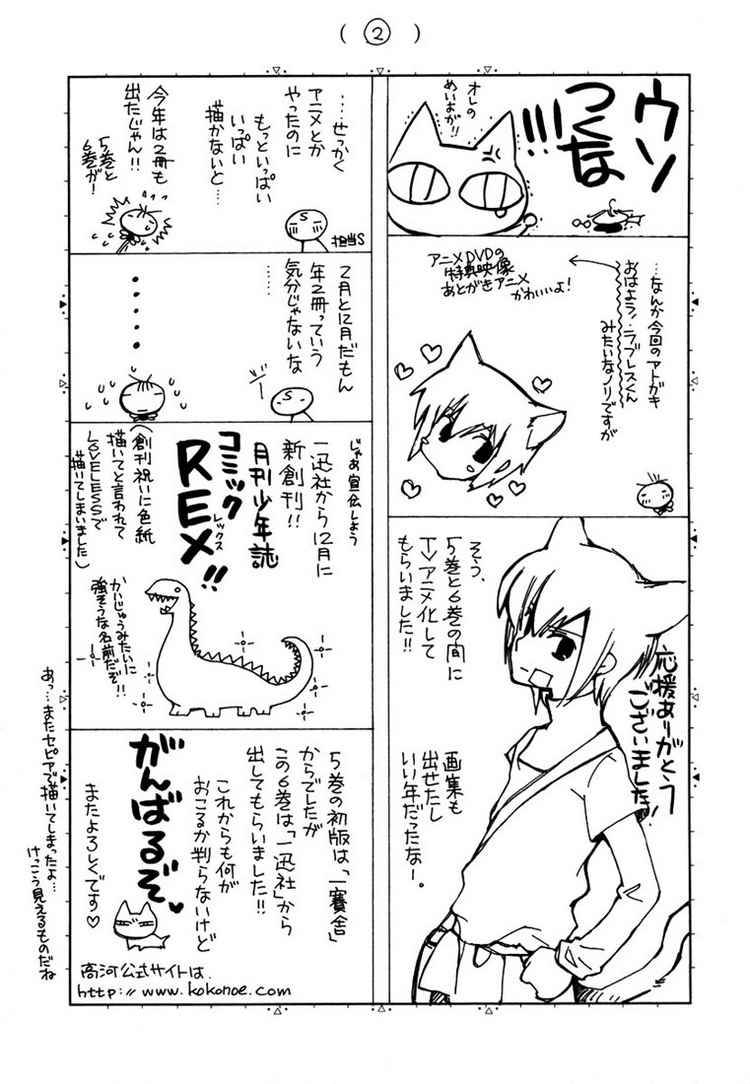 (②)
ウソ
つくな
!!!
オレの
めいよが!!
…なんか今回のアトガキ
おはよう!ラブレスくん
みたいなノリですが
アニメDVDの
特典映像
あとがきアニメ
かわいいよ!
そう、
5巻と6巻の間に
TVアニメ化して
もらいました!!
応援ありがとう
ございました!
画集も
出せたし
いい年だったなー。
…せっかく
アニメとか
やったのに
もっといっぱい
いっぱい
描かないと…
S
担当S
今年は2冊も
出たじゃん!!
5巻と
6巻が!
2月と12月だもん
年2冊っていう
気分じゃないな
…
S
……
じゃあ宣伝しよう
一迅社から12月に
新創刊!!
月刊少年誌
コミック
REX!!
レックス
(創刊祝いに色紙
描いてと言われて
LOVELESSで
描いてしまいました)
かいじゅうみたいに
強そうな名前だぞ!!
5巻の初版は、「一賽舎」
からでしたが
この6巻は「一迅社」から
出してもらいました!!
これからも何が
おこるか判らないけど
がんばるぞ
またよろしくです♡
高河公式サイトは
http://www.kokonoe.com
あっ…またセピアで描いてしまったよ…
けっこう見えるものだね